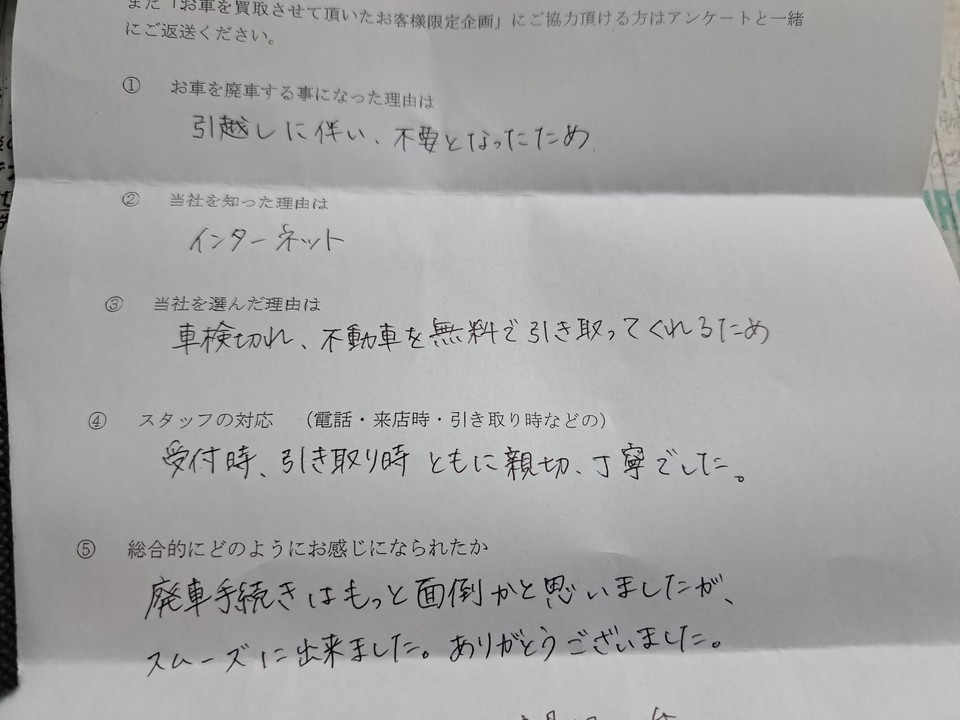 また「お車を買取させて頂いたお客様限定企画」にご協力頂ける方はアンケートと一緒
にご返送ください。
① お車を廃車する事になった理由は
引越しに伴い、不要となったため
② 当社を知った理由は
インターネット
③ 当社を選んだ理由は
車検切れ、不動車を無料で引き取ってくれるため
④ スタッフの対応 （電話・来店時・引き取り時などの）
受付時、引き取り時ともに親切、丁寧でした。
⑤ 総合的にどのようにお感じになられたか
廃車手続きはもっと面倒かと思いましたが、
スムーズに出来ました。ありがとうございました。